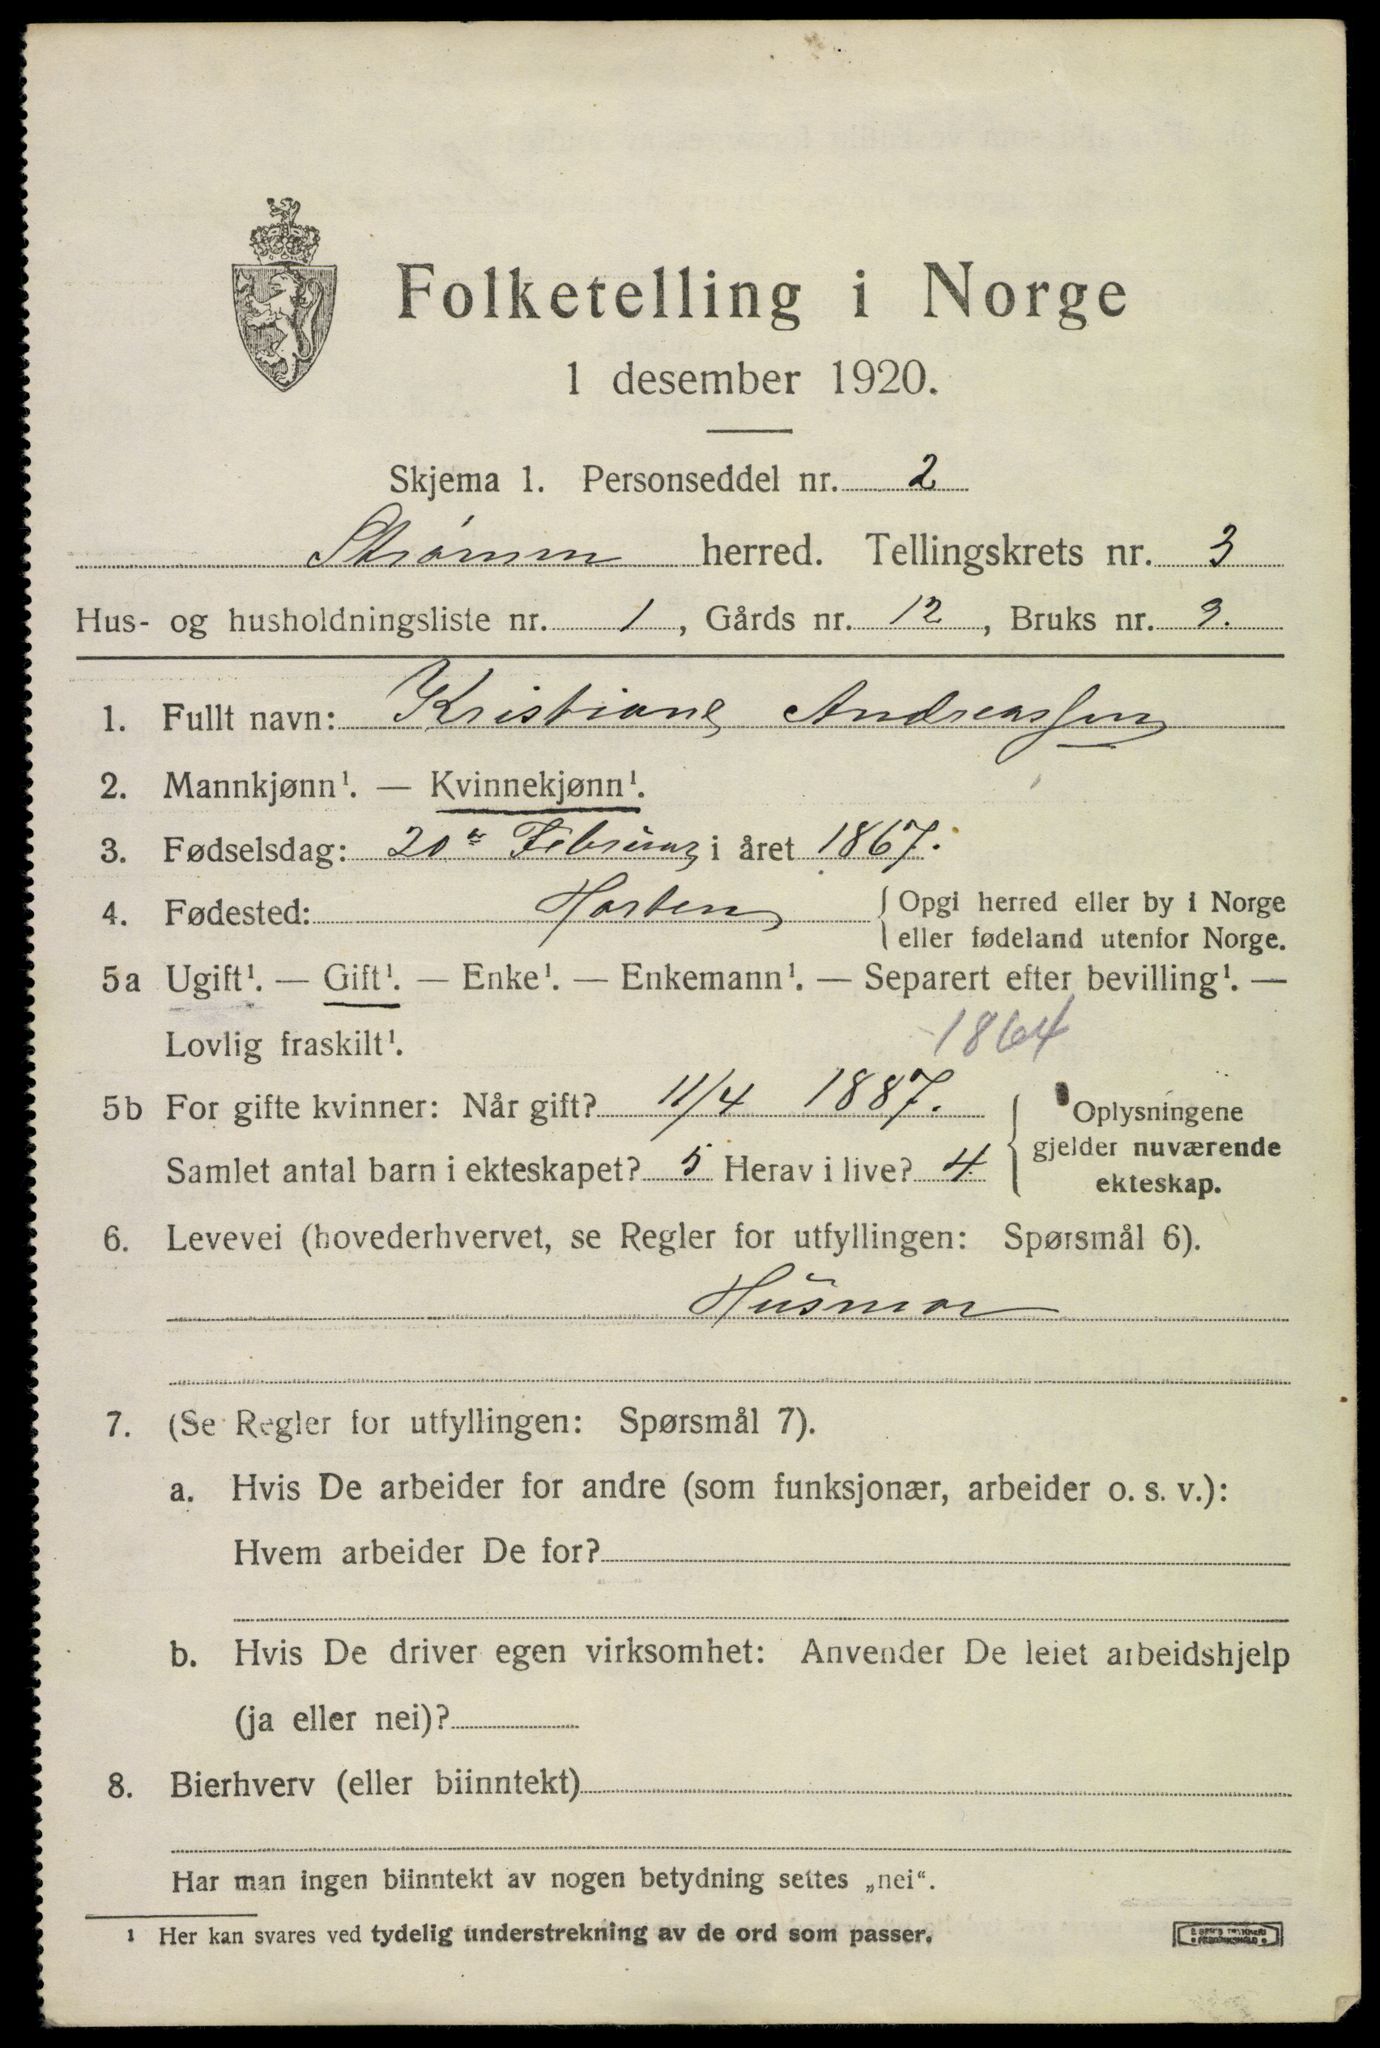 Folketelling i Norge
1 desember 1920.
Skjema 1. Personseddel nr. 2
Strømm herred. Tellingskrets nr. 3
Hus- og husholdningsliste nr. 1, Gårds nr. 12, Bruks nr. 9.
1. Fullt navn: Kristiane Andreassen
2. Mannkjønn¹. — Kvinnekjønn¹.
3. Fødselsdag: 20de Februar i året 1867.
4. Fødested: Horten { Opgi herred eller by i Norge
eller fødeland utenfor Norge.
5a Ugift¹. — Gift¹. — Enke¹. — Enkemann¹. — Separert efter bevilling¹. —
Lovlig fraskilt¹. 1864
5b For gifte kvinner: Når gift? 11/4 1887. { Oplysningene
gjelder nuværende
Samlet antal barn i ekteskapet? 5 Herav i live? 4 ekteskap.
6. Levevei (hovederhvervet, se Regler for utfyllingen: Spørsmål 6).
Husmor
7. (Se Regler for utfyllingen: Spørsmål 7).
a. Hvis De arbeider for andre (som funksjonær, arbeider o. s. v.):
Hvem arbeider De for?
b. Hvis De driver egen virksomhet: Anvender De leiet arbeidshjelp
(ja eller nei)?
8. Bierhverv (eller biinntekt)
Har man ingen biinntekt av nogen betydning settes „nei“.
¹ Her kan svares ved tydelig understrekning av de ord som passer.